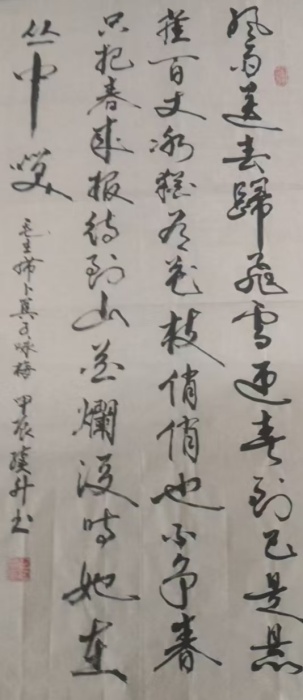 風雨送春歸飛雪迎春到已是懸
崖百丈冰猶有花枝俏俏也不争春
只把春来报待到山花爛漫时她在
丛中笑
毛主席卜算子咏梅 甲辰 升书